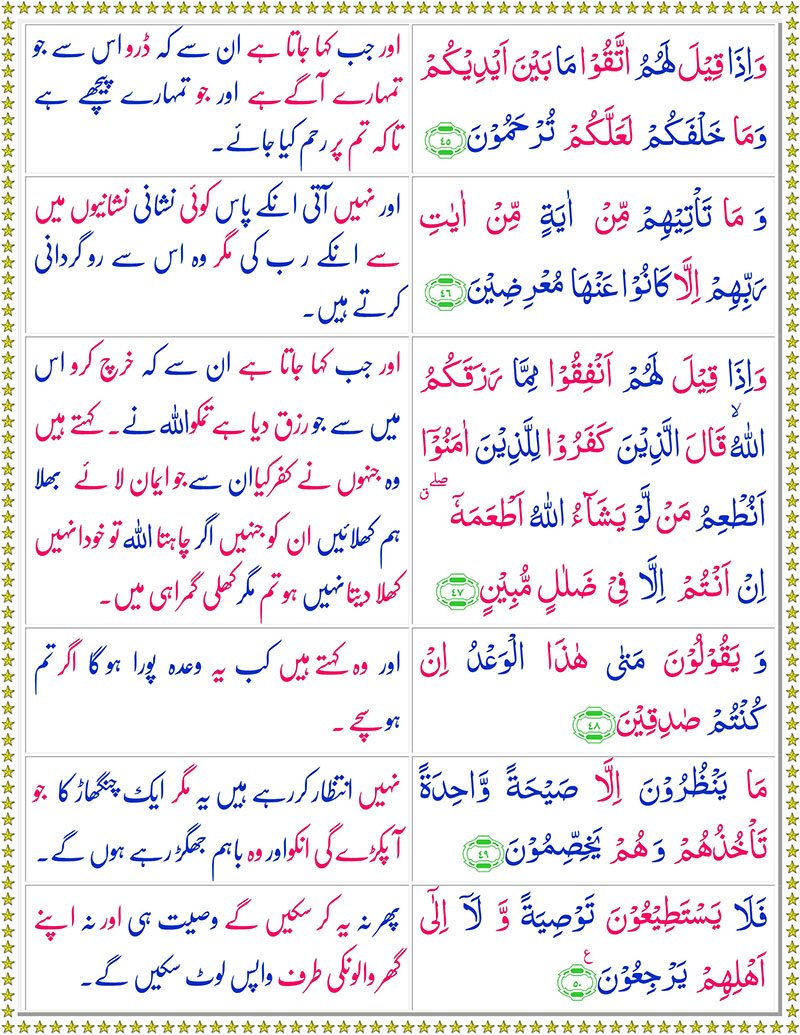 وَاِذَا قِيْلَ لَهُمُ اتَّقُوْا مَا بَيْنَ اَيْدِيْكُمْ
وَمَا خَلْفَكُمْ لَعَلَّكُمْ تُرْحَمُوْنَ ٤٥
اور جب کہا جاتا ہے ان سے کہ ڈرو اس سے جو
تمہارے آگے ہے اور جو تمہارے پیچھے ہے
تاکہ تم پر رحم کیا جائے۔
وَ مَا تَاْتِيْهِمْ مِّنْ اٰيَةٍ مِّنْ اٰيٰتِ
رَبِّهِمْ اِلَّا كَانُوْا عَنْهَا مُعْرِضِيْنَ ٤٦
اور نہیں آتی انکے پاس کوئی نشانی نشانیوں میں
سے انکے رب کی مگر وہ اس سے روگردانی
کرتے ہیں۔
وَاِذَا قِيْلَ لَهُمْ اَنْفِقُوْا مِمَّا رَزَقَكُمُ
اللّٰهُ ۙ قَالَ الَّذِيْنَ كَفَرُوْا لِلَّذِيْنَ اٰمَنُوْۤا
اَنُطْعِمُ مَنْ لَّوْ يَشَآءُ اللّٰهُ اَطْعَمَهٗۤ ۖ ق
اِنْ اَنْتُمْ اِلَّا فِيْ ضَلٰلٍ مُّبِيْنٍ ٤٧
اور جب کہا جاتا ہے ان سے کہ خرچ کرو اس
میں سے جو رزق دیا ہے تمکو اللہ نے۔ کہتے ہیں
وہ جنہوں نے کفر کیا ان سے جو ایمان لائے بھلا
ہم کھلائیں ان کو جنہیں اگر چاہتا اللہ تو خودانہیں
کھلا دیتا نہیں ہو تم مگر کھلی گمراہی میں۔
وَ يَقُوْلُوْنَ مَتٰى هٰذَا الْوَعْدُ اِنْ
كُنْتُمْ صٰدِقِيْنَ ٤٨
اور وہ کہتے ہیں کب یہ وعدہ پورا ہو گا اگر تم
ہو سچے ۔
مَا يَنْظُرُوْنَ اِلَّا صَيْحَةً وَّاحِدَةً
تَاْخُذُهُمْ وَهُمْ يَخِصِّمُوْنَ ٤٩
نہیں انتظار کر رہے ہیں یہ مگر ایک چنگھاڑ کا جو
آ پکڑے گی انکو اور وہ باہم جھگڑ رہے ہوں گے۔
فَلَا يَسْتَطِيْعُوْنَ تَوْصِيَةً وَّ لَاۤ اِلٰۤى
اَهْلِهِمْ يَرْجِعُوْنَ ع ٥٠
پھر نہ یہ کر سکیں گے وصیت ہی اور نہ اپنے
گھر والونکی طرف واپس لوٹ سکیں گے۔